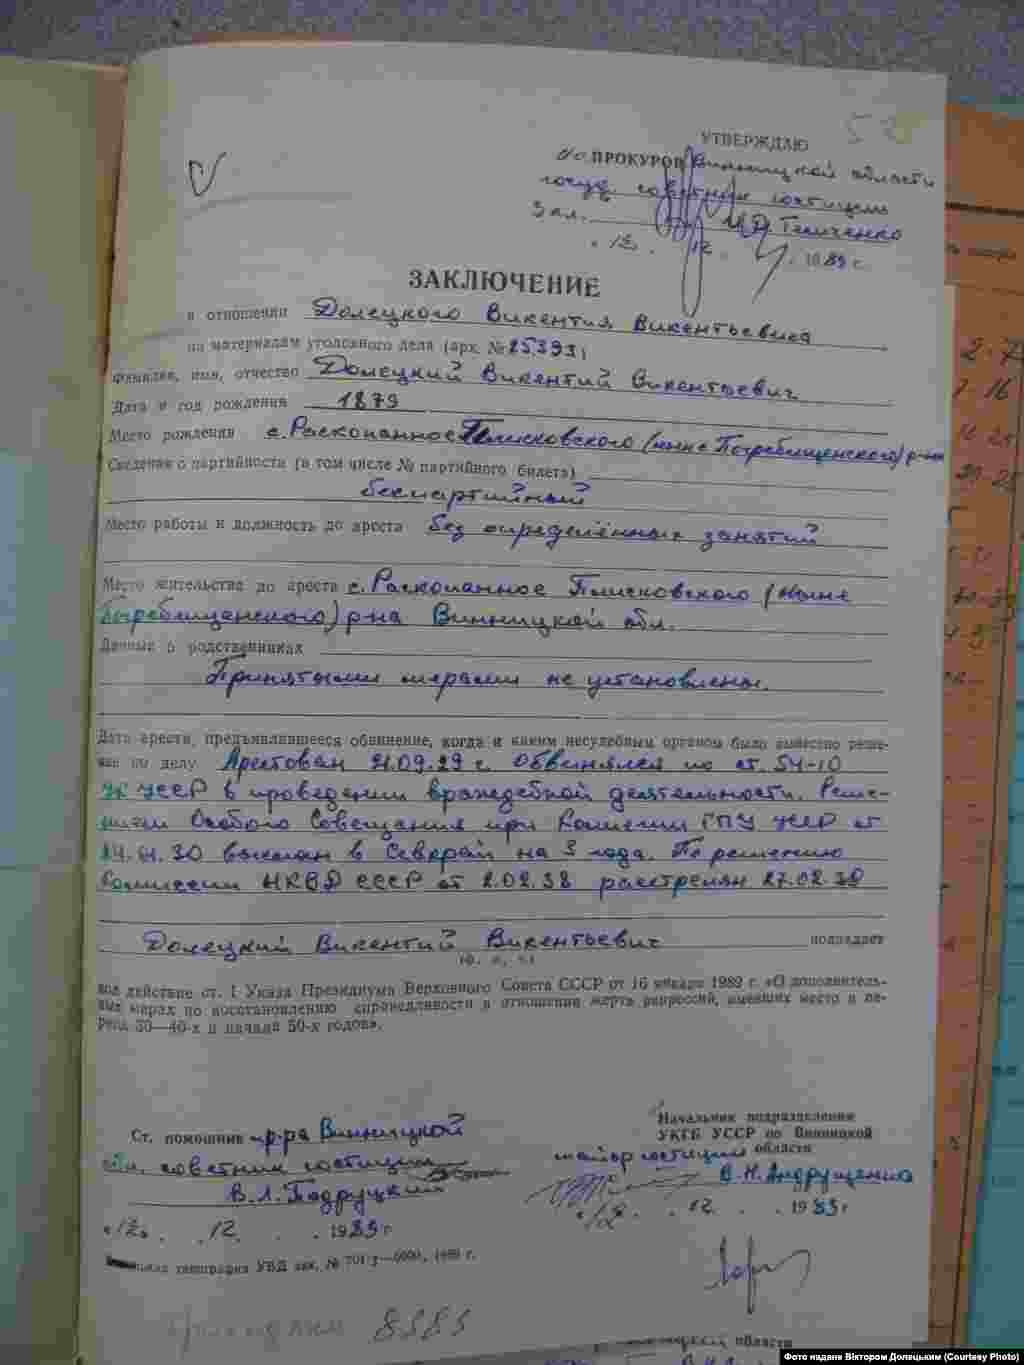 52
УТВЕРЖДАЮ
ПРОКУРОР Винницкой области
госуд. советник юстиции
3 кл.
«12» 12 1989 г.
ЗАКЛЮЧЕНИЕ
в отношении Долецкого Викентия Викентьевича
по материалам уголовного дела (арх. № 25393)
Фамилия, имя, отчество Долецкий Викентий Викентьевич
Дата и год рождения 1879
Место рождения с. Раскопанное Плисковского (ныне Погребищенского) р-на
Сведения о партийности (в том числе № партийного билета)
беспартийный
Место работы и должность до ареста без определённых занятий
Место жительства до ареста с. Раскопанное Плисковского (ныне
Погребищенского) р-на Винницкой обл.
Данные о родственниках
Принятыми мерами не установлены.
Дата ареста, предъявлявшееся обвинение, когда и каким несудебным органом было вынесено реше-
ние по делу Арестован 21.09.29 г. Обвинялся по ст. 54-10
УК УССР в проведении враждебной деятельности. Реше-
нием Особого Совещания при Коллегии ГПУ УССР от
14.01.30 выслан в Севкрай на 3 года. По решению
Комиссии НКВД СССР от 2.02.38 расстрелян 27.02.38
Долецкий Викентий Викентьевич подпадает
(ф. и. о.)
под действие ст. 1 Указа Президиума Верховного Совета СССР от 16 января 1989 г. «О дополнитель-
ных мерах по восстановлению справедливости в отношении жертв репрессий, имевших место в пе-
риод 30—40-х и начала 50-х годов».
Ст. помощник пр-ра Винницкой
обл. советник юстиции
В.Л. Подруцкий
«12» 12 1989 г.
Начальник подразделения
УКГБ УССР по Винницкой
области
майор юстиции
В.Н. Андрущенко
«12» 12 1989 г.
типография УВД зак. № 701 3—6000, 1989 г.
8383
области
Фото надане Віктором Долецьким (Courtesy Photo)